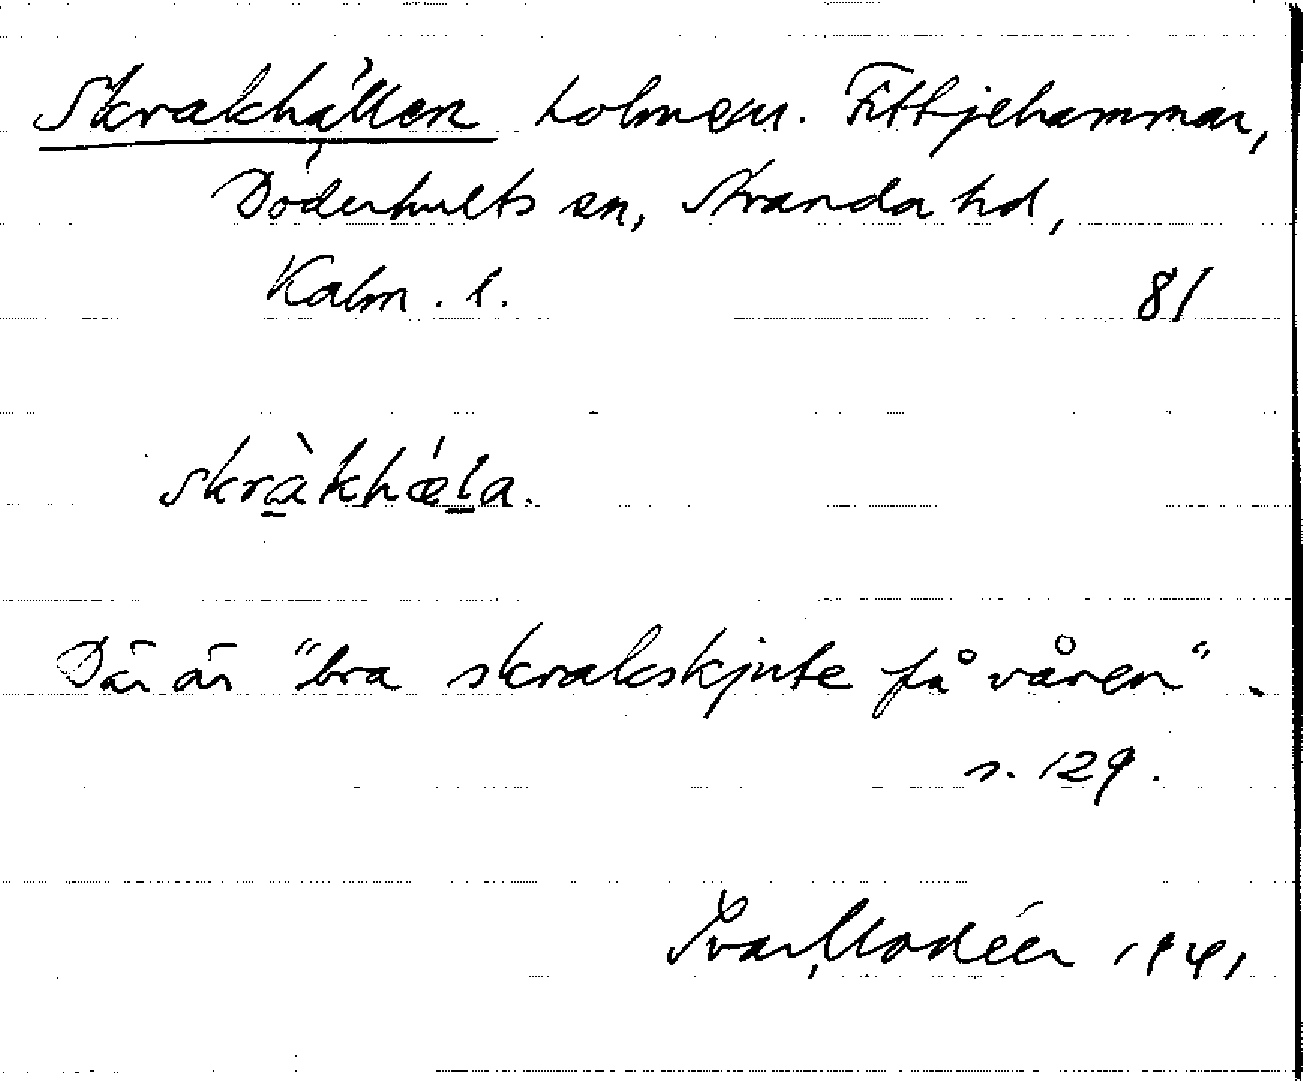 Skrakhällen holme su. Fittjehammar,
Döderhults sn, Stranda hd,
Kalm. l. 81
skràkhǽla.
Där är "bra skrakskjute på våren".
s. 129.
Ivar Modéer 1941